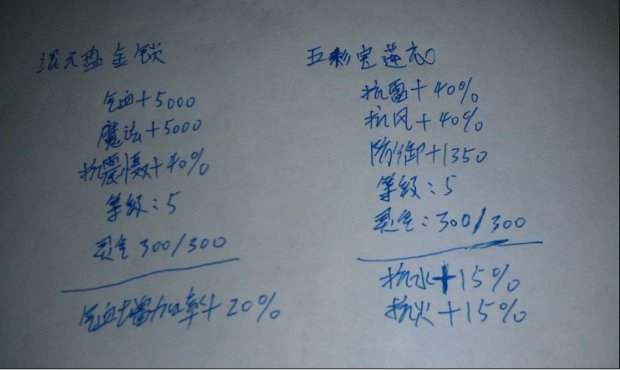 混元盘金锁
气血+5000
魔法+5000
抗震慑+40%
等级:5
灵气 300/300
气血增加率+20%
五彩宝莲衣
抗雷+40%
抗风+40%
防御+1350
等级:5
灵气:300/300
抗水+15%
抗火+15%